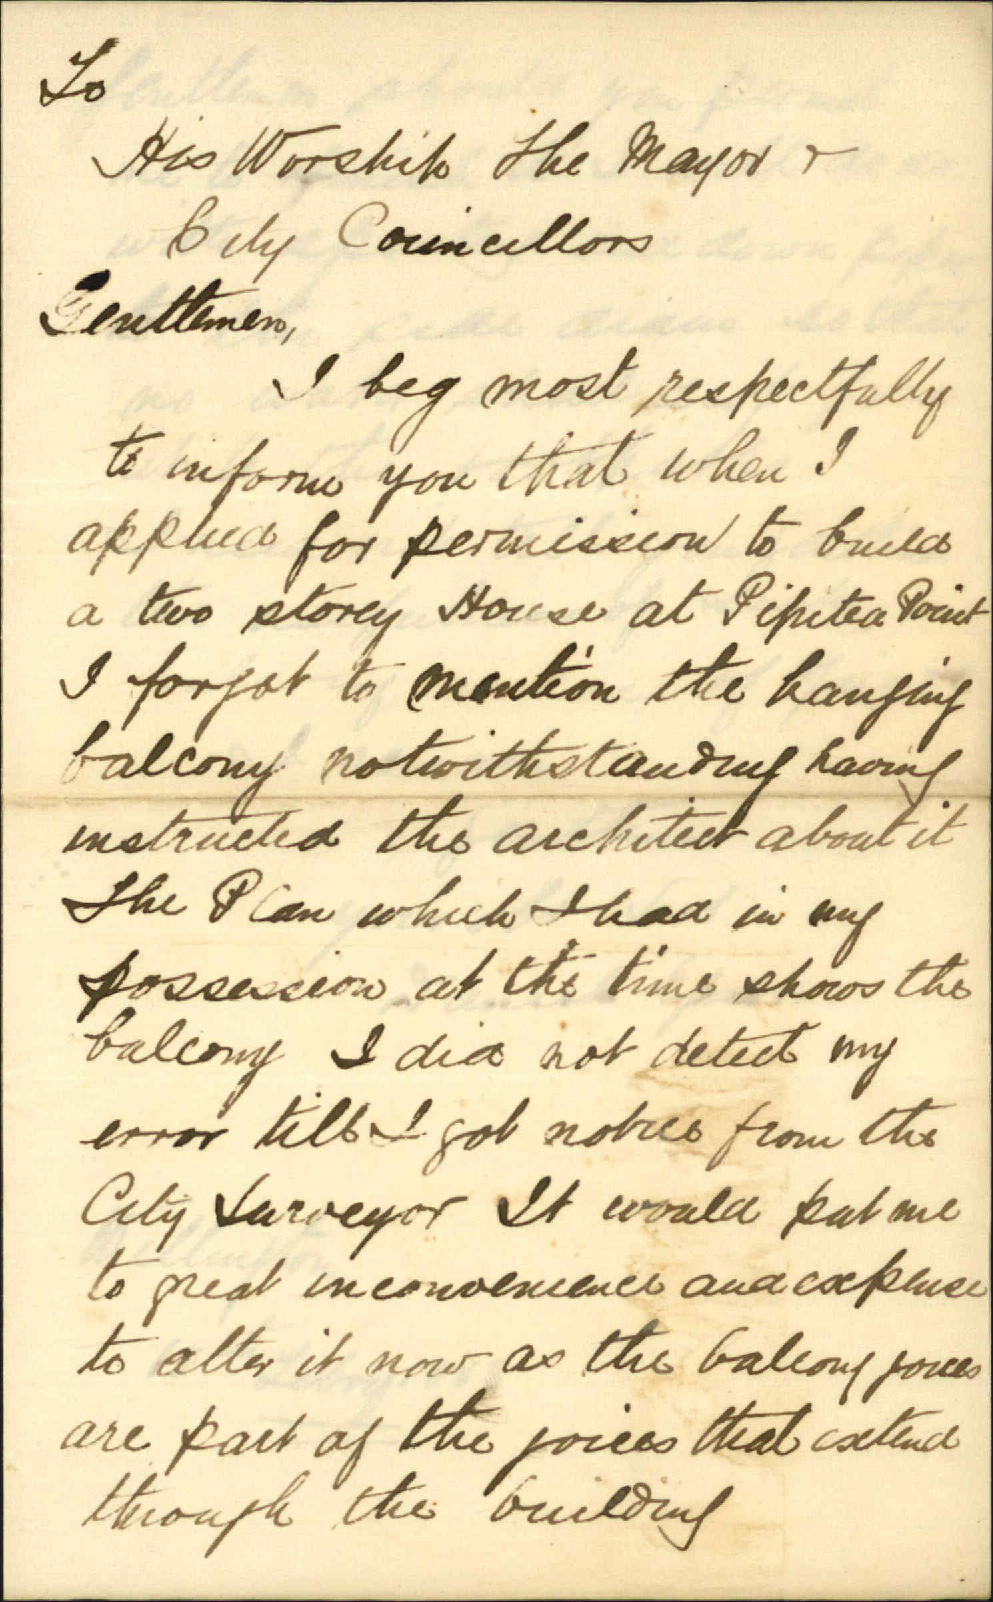 To
His Worship the Mayor &
City Councillors
Gentlemen,
I beg most respectfully
to inform you that when I
applied for permission to build
a two storey House at Pipitea Point
I forgot to mention the hanging
balcony notwithstanding having
instructed the architect about it
The Plan which I had in my
possession at the time shows the
balcony I did not detect my
error till I got notice from the
City Surveyor It would put me
to great inconvenience and expense
to alter it now as the balcony joices
are part of the joices that extend
through the building